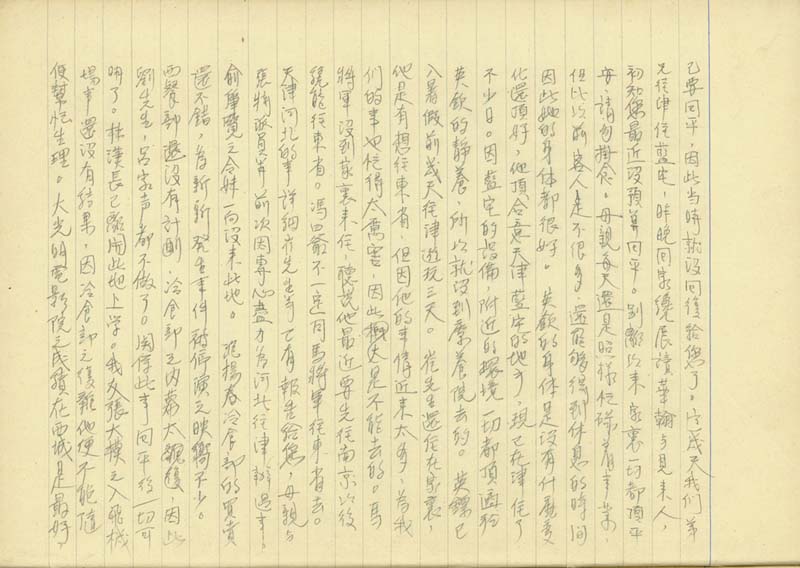 已要回平，因此当時就沒回復給您了。这幾天我们弟
兄往津住藍宅，昨晚回家繞辰讀華翰与見来人，
初知您最近沒預算回平。别離以来家裏一切都頂平
安，請勿掛念。母親每天還是照樣忙碌着事業，
但比以前客人是不很多，還能够得到休息的時間
因此她的身体都很好。英欽的身体是沒有什麼变
化還頂好，他頂合意天津藍宅的地方，現已在津住了
不少日。因藍宅的設備，附近的環境一切都頂適於
英欽的静養，所以就沒到療養院去的。英鏢已
入暑假前幾天往津遊玩三天。崔先生還住在家裏，
他是有想往東省，但因他的事情近来太多，為我
们的事也忙得太厲害，因此概大是不能去的。馬
將軍沒到家裏来住，聽说他最近要先往南京以後
繞能往東省。馮四爺不一定同馬將軍往東省去。
天津河北的事詳细亦先生等已有報告給您，母親与
張將派員等前次因專心盡力為河北往津辦過事。
俞珮覽之令妹一向沒来此地。聽揚春冷食部的買賣
還不错，為新新發生事件被停演之映響不少。
西餐部還沒有計劃。冷食部之内幕太複復，因此
劉先生，呂家声都不做了。関係此事回平後一切可
明了。林漢長已離開此地上学。我及張大撲之入飛機
場事還没有结果，因冷食部之復雜他便不能隨
便幫忙生理。大光明電影院之成績在西城是最好，